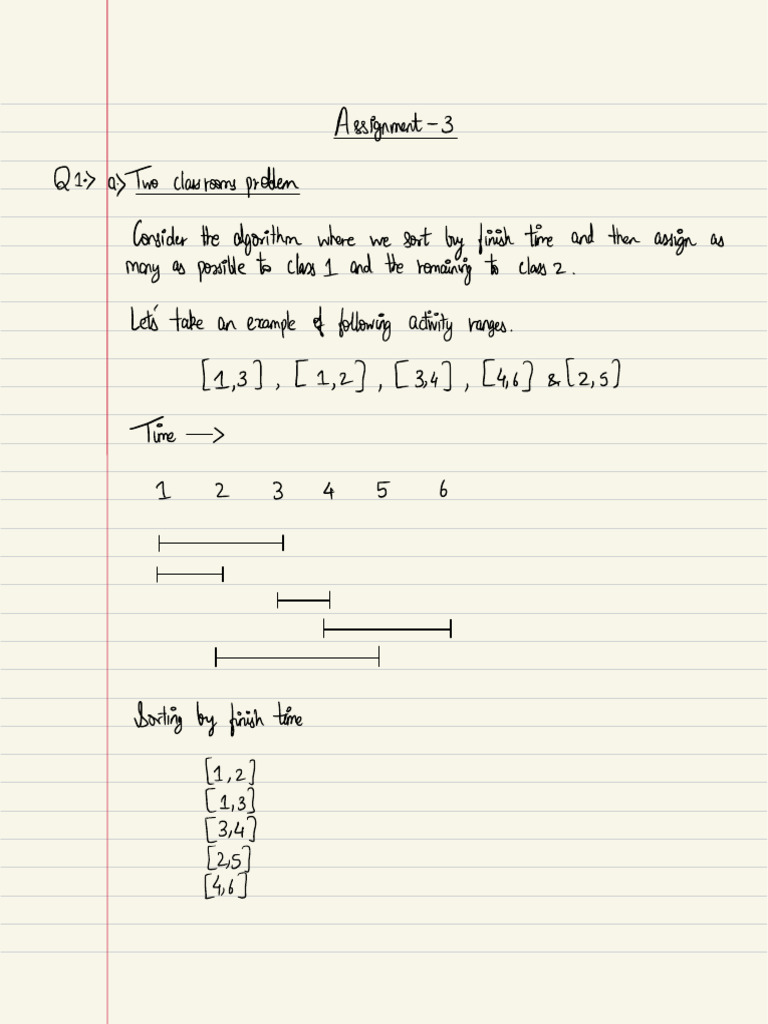 Assignment - 3
Q1.> a.> Two classrooms problem
Consider the algorithm where we sort by finish time and then assign as
many as possible to class 1 and the remaining to class 2.
Let's take an example of following activity ranges.
[1,3] , [1,2] , [3,4] , [4,6] & [2,5]
Time →
1 2 3 4 5 6
Sorting by finish time
[1,2]
[1,3]
[3,4]
[2,5]
[4,6]